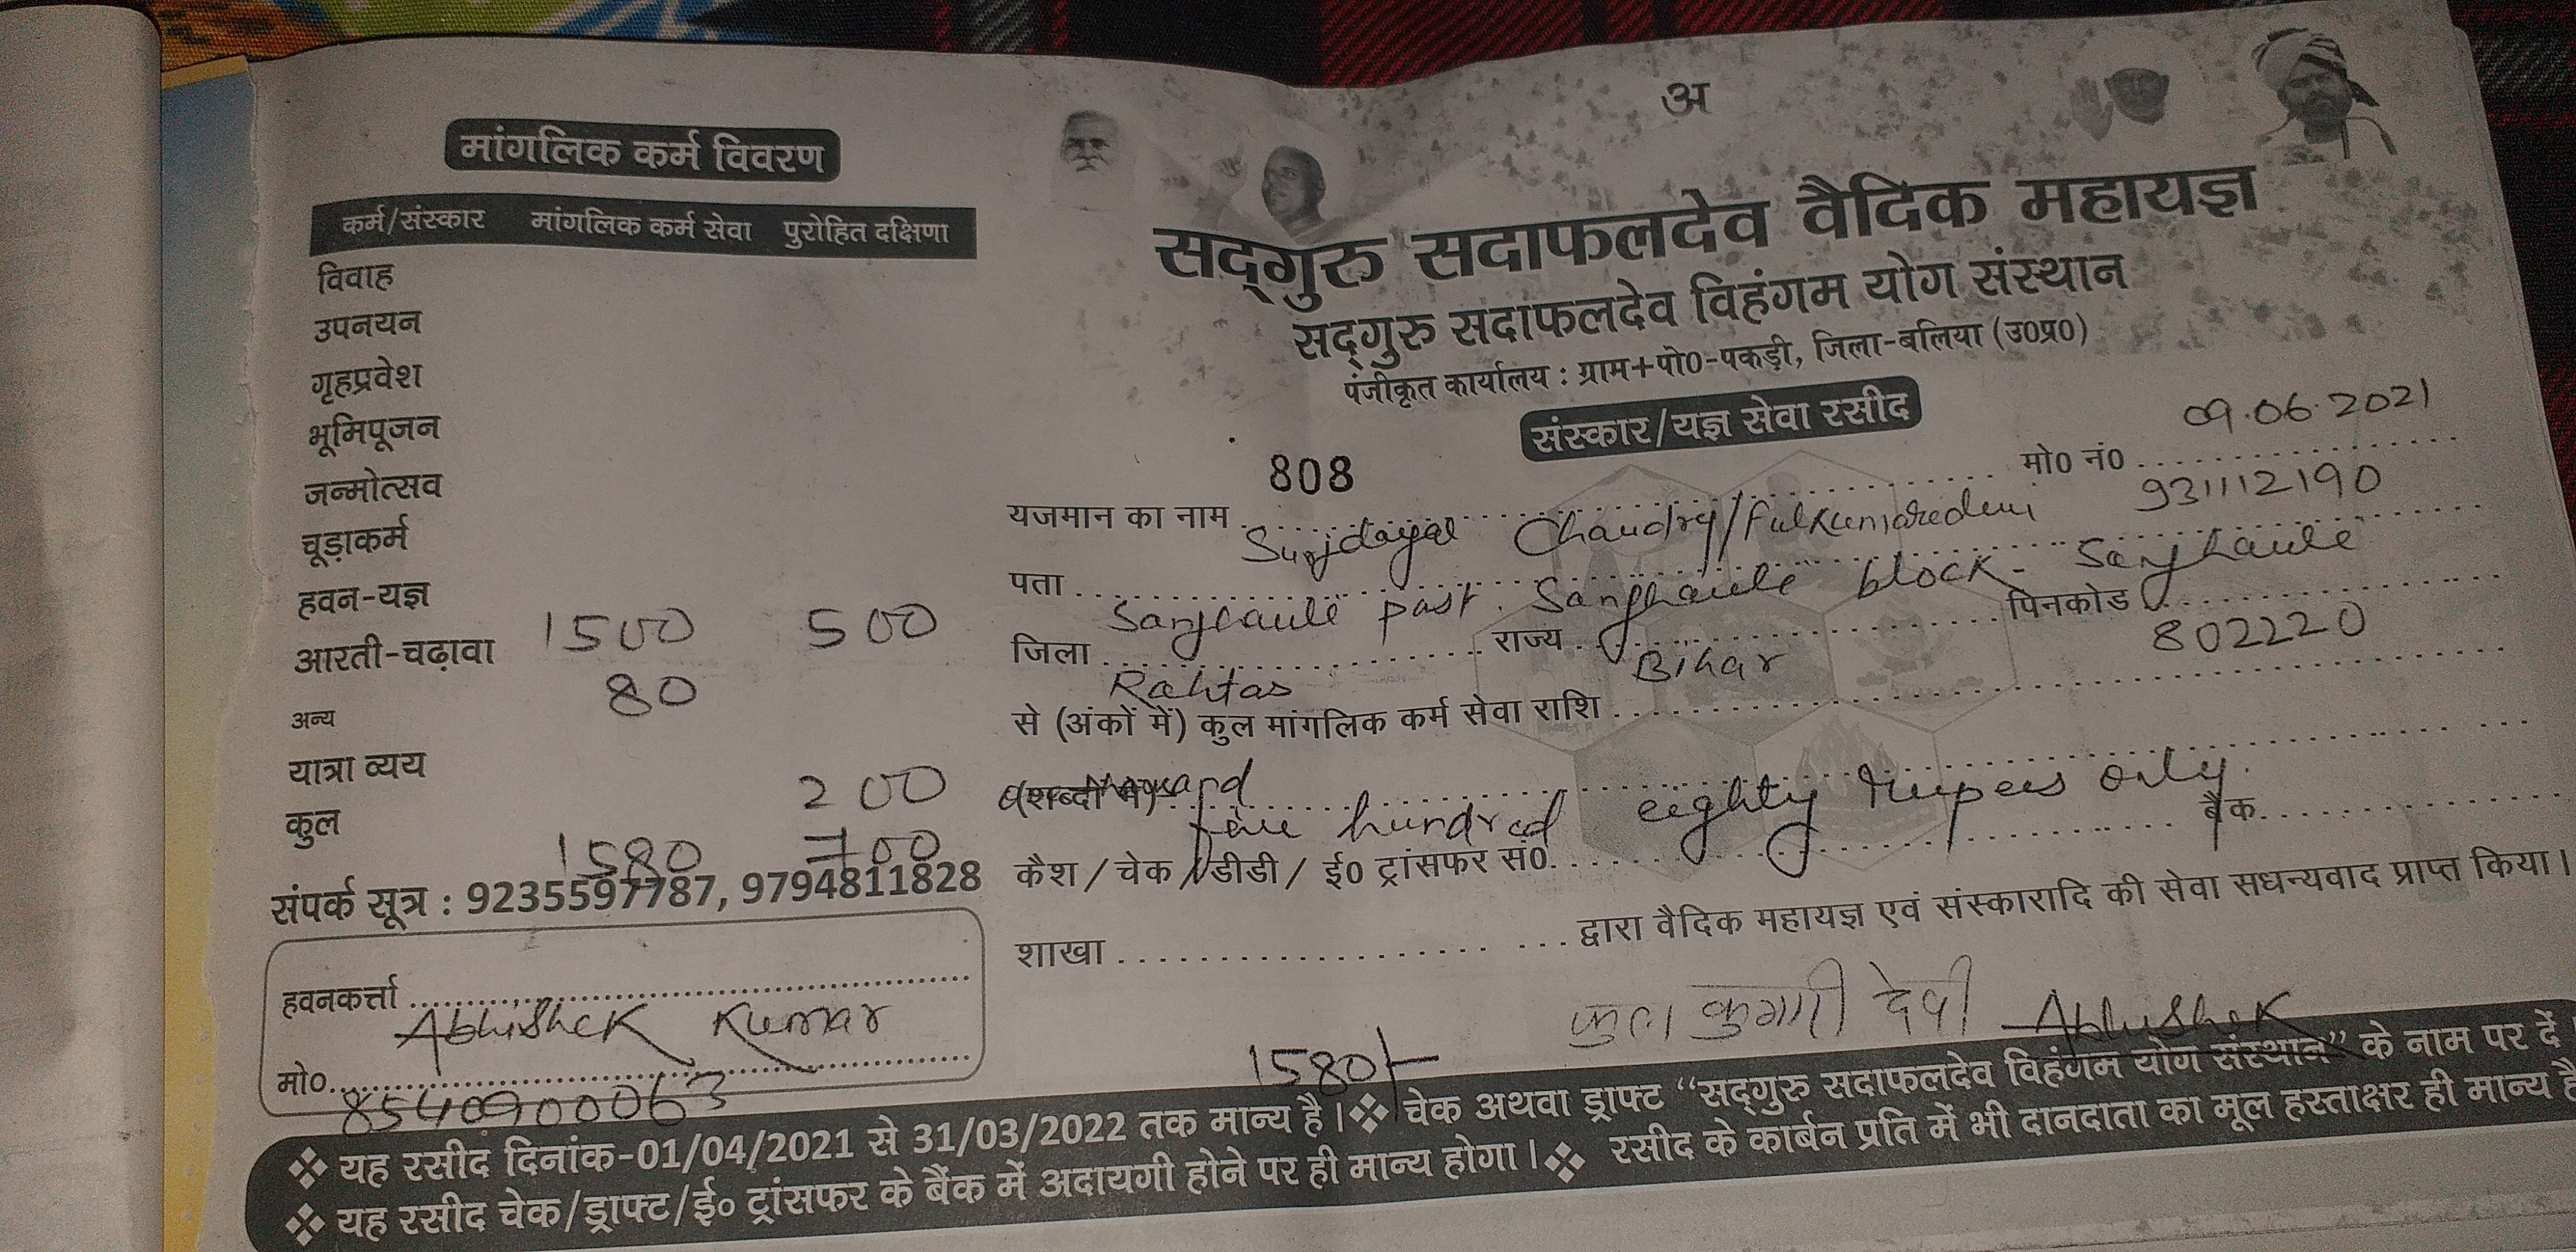 अ
मांगलिक कर्म विवरण
कर्म/संस्कार मांगलिक कर्म सेवा पुरोहित दक्षिणा
विवाह
उपनयन
गृहप्रवेश
भूमिपूजन
जन्मोत्सव
चूड़ाकर्म
हवन-यज्ञ
1500 500
आरती-चढ़ावा
80
अन्य
यात्रा व्यय
200
कुल
1580 700
संपर्क सूत्र : 9235597787, 9794811828
हवनकर्त्ता
Abhishek Kumar
मो०
8540900063
सद्गुरु सदाफलदेव वैदिक महायज्ञ
सद्गुरु सदाफलदेव विहंगम योग संस्थान
पंजीकृत कार्यालय : ग्राम+पो0-पकड़ी, जिला-बलिया (उ0प्र0)
संस्कार/यज्ञ सेवा रसीद
808
09.06.2021
यजमान का नाम मो0 नं0
Surjdayal Chaudry/ 931112190
पता
past. block- Sanjhaule
जिला राज्य पिनकोड
Rahtas Bihar 802220
से (अंकों में) कुल मांगलिक कर्म सेवा राशि
(शब्दों में)
five hundred eighty rupees only.
कैश / चेक / डीडी / ई0 ट्रांसफर सं0. बैंक
शाखा द्वारा वैदिक महायज्ञ एवं संस्कारादि की सेवा सधन्यवाद प्राप्त किया।
1580/- देवी Abhishek
❖ यह रसीद दिनांक-01/04/2021 से 31/03/2022 तक मान्य है। ❖ चेक अथवा ड्राफ्ट “सद्गुरु सदाफलदेव विहंगम योग संस्थान” के नाम पर दें
❖ यह रसीद चेक/ड्राफ्ट/ई० ट्रांसफर के बैंक में अदायगी होने पर ही मान्य होगा। ❖ रसीद के कार्बन प्रति में भी दानदाता का मूल हस्ताक्षर ही मान्य है